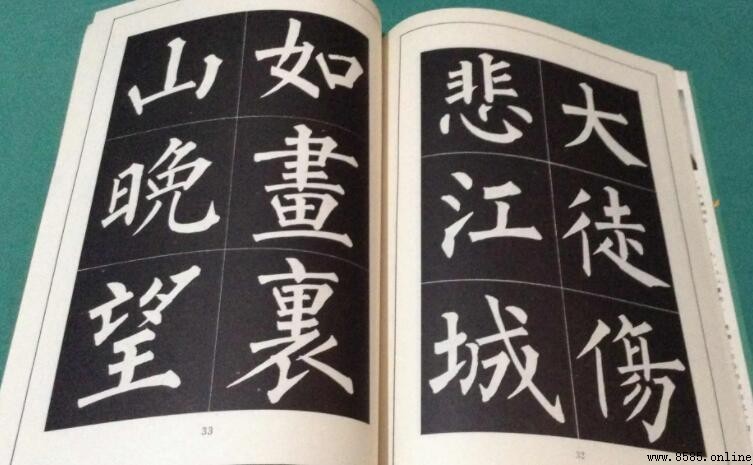 大徒傷
悲江城
32
如畫裏
山晚望
33
www.8585.online